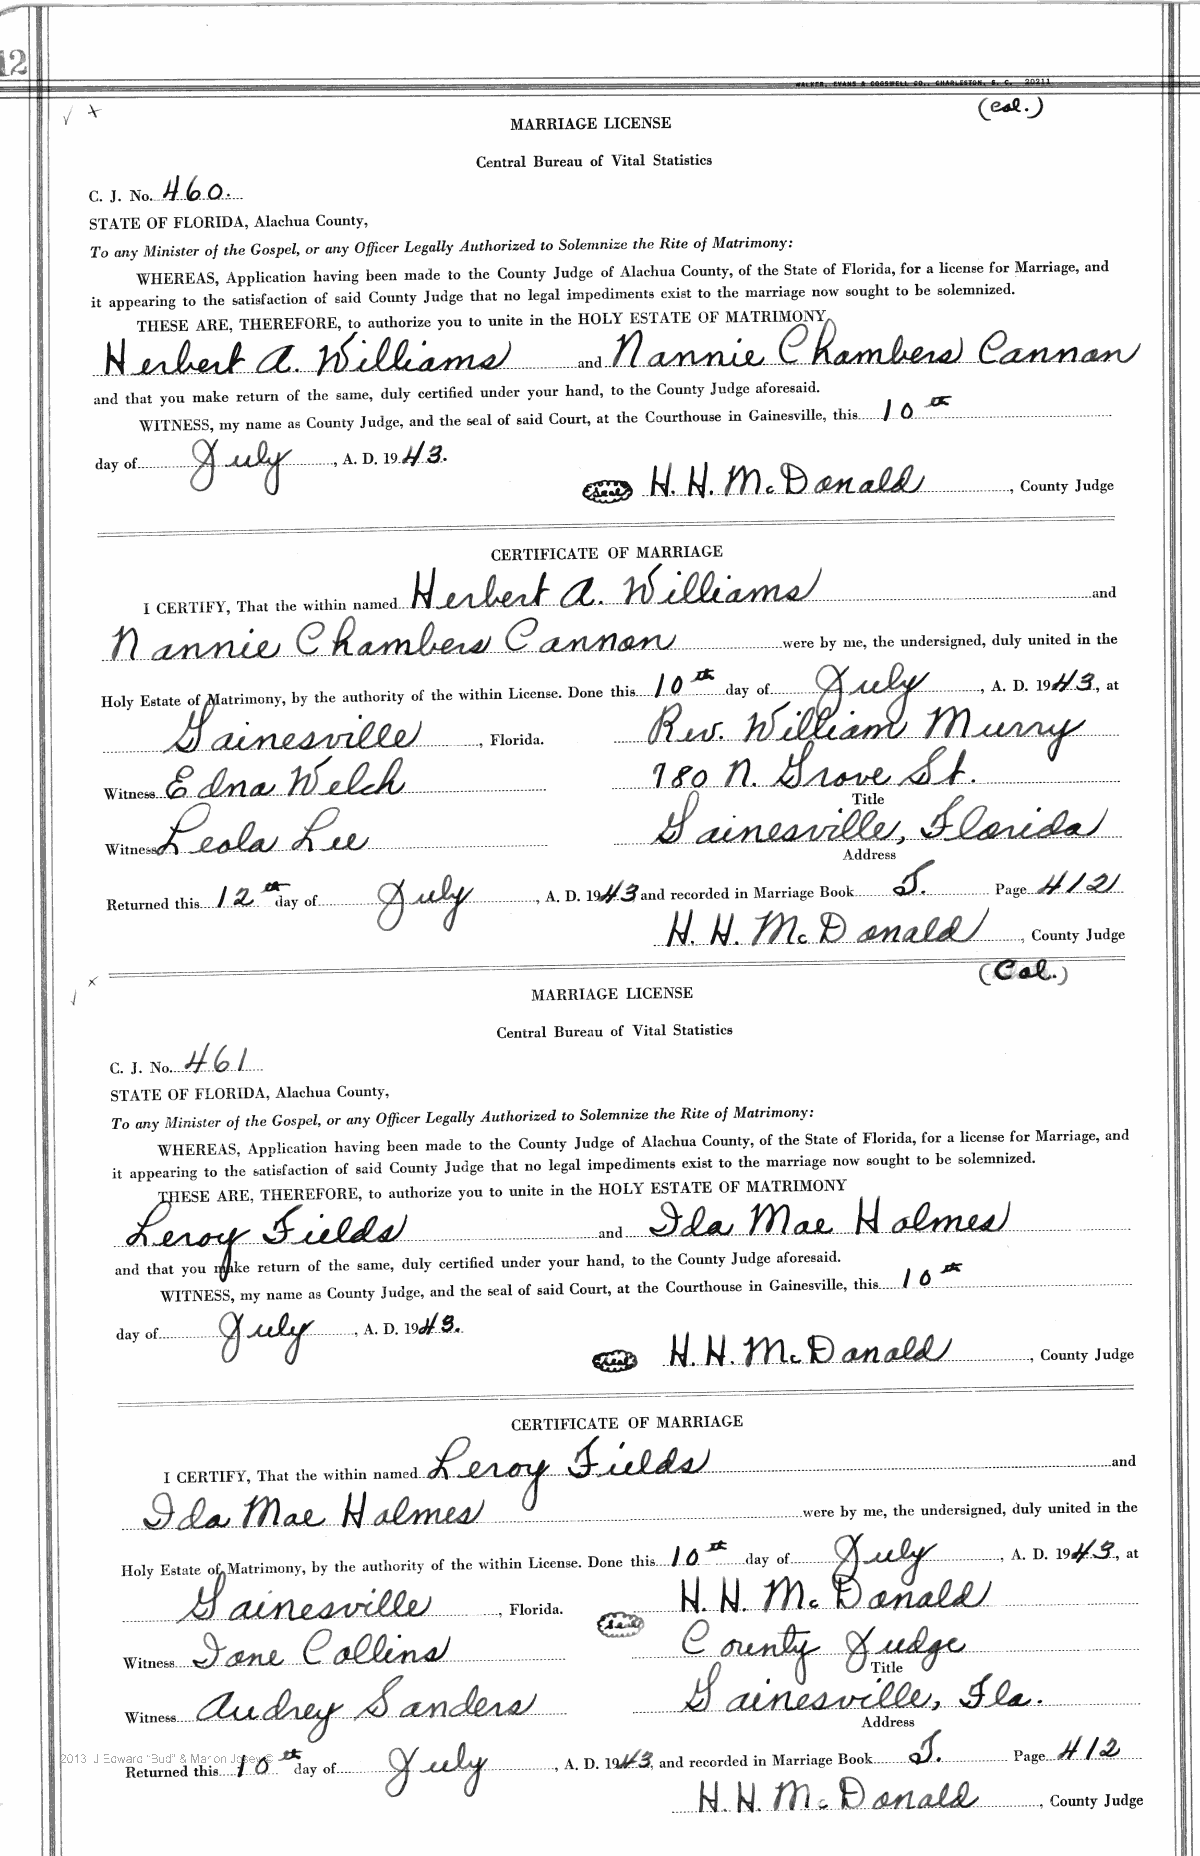 12
WALKER, EVANS & COGSWELL CO., CHARLESTON, S. C. 20211
(Col.)
MARRIAGE LICENSE
Central Bureau of Vital Statistics
C. J. No. 460.
STATE OF FLORIDA, Alachua County,
To any Minister of the Gospel, or any Officer Legally Authorized to Solemnize the Rite of Matrimony:
WHEREAS, Application having been made to the County Judge of Alachua County, of the State of Florida, for a license for Marriage, and
it appearing to the satisfaction of said County Judge that no legal impediments exist to the marriage now sought to be solemnized.
THESE ARE, THEREFORE, to authorize you to unite in the HOLY ESTATE OF MATRIMONY
Herbert A. Williams and Nannie Chambers Cannon
and that you make return of the same, duly certified under your hand, to the County Judge aforesaid.
WITNESS, my name as County Judge, and the seal of said Court, at the Courthouse in Gainesville, this 10th
day of July, A. D. 1943.
Seal H. H. McDonald, County Judge
CERTIFICATE OF MARRIAGE
I CERTIFY, That the within named Herbert A. Williams and
Nannie Chambers Cannon were by me, the undersigned, duly united in the
Holy Estate of Matrimony, by the authority of the within License. Done this 10th day of July, A. D. 1943, at
Gainesville, Florida. Rev. William Murry
Witness Edna Welch 780 N. Grove St.
Title
Witness Leola Lee Gainesville, Florida
Address
Returned this 12th day of July, A. D. 1943 and recorded in Marriage Book J. Page 412
H. H. McDonald, County Judge
(Col.)
MARRIAGE LICENSE
Central Bureau of Vital Statistics
C. J. No. 461
STATE OF FLORIDA, Alachua County,
To any Minister of the Gospel, or any Officer Legally Authorized to Solemnize the Rite of Matrimony:
WHEREAS, Application having been made to the County Judge of Alachua County, of the State of Florida, for a license for Marriage, and
it appearing to the satisfaction of said County Judge that no legal impediments exist to the marriage now sought to be solemnized.
THESE ARE, THEREFORE, to authorize you to unite in the HOLY ESTATE OF MATRIMONY
Leroy Fields and Ida Mae Holmes
and that you make return of the same, duly certified under your hand, to the County Judge aforesaid.
WITNESS, my name as County Judge, and the seal of said Court, at the Courthouse in Gainesville, this 10th
day of July, A. D. 1943.
Seal H. H. McDonald, County Judge
CERTIFICATE OF MARRIAGE
I CERTIFY, That the within named Leroy Fields and
Ida Mae Holmes were by me, the undersigned, duly united in the
Holy Estate of Matrimony, by the authority of the within License. Done this 10th day of July, A. D. 1943, at
Gainesville, Florida. Seal H. H. McDonald
Witness Ione Collins County Judge
Title
Witness Audrey Sanders Gainesville, Fla.
Address
2013 J Edward "Bud" & Marion Josey ©
Returned this 10th day of July, A. D. 1943, and recorded in Marriage Book J. Page 412
H. H. McDonald, County Judge